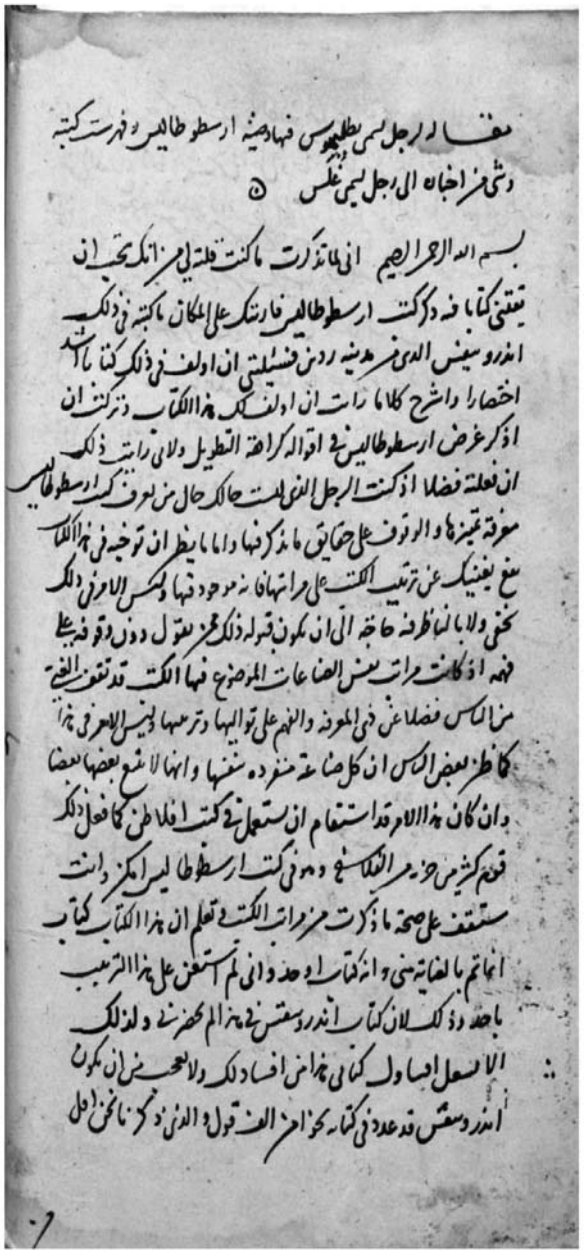 مقاله لرجل يسمى بطليموس فيها وصية ارسطوطاليس وفهرست كتبه
وشى من اخباره الى رجل يسمى غلس
بسم الله الرحمن الرحيم انى لما تذكرت ما كنت قلته لى من انك تحب ان
تقتنى كتابا فيه ذكر كتب ارسطوطاليس فارتك على المكان ما كتبه فى ذلك
اندرونيقس الذى من مدينة ردس فسئلتنى ان اولف فى ذلك كتابا اشد
اختصارا واشرح كلاما رايت ان اولف لك هذا الكتاب وتركت ان
اذكر غرض ارسطوطاليس فى اقواله كراهة التطويل ولانى رايت ذلك
ان فعلته فضلا اذ كنت الرجل الذى ليست حالك حال من لم يعرف كتب ارسطوطاليس
معرفة تميزها والوقوف على حقايق ما يذكر فيها واما ما ينظر ان توخيه فى هذا الكتاب
يغنيك عن ترتيب الكتب على مراتبها فانه موجود فيها وليس الامر فى ذلك
يخفى ولا بالناظر فيه حاجة الى ان يكون قبوله ذلك ممن يقول دون وقوفه على
فهمه اذ كانت مراتب بعض الصناعات الموضوع فيها الكتب قد تقف
من الناس فضلا عن ذى المعرفة والفهم على تواليها وترتيبها وليس الامر فى هذا
كما ظن بعض الناس ان كل صناعة منفردة بنفسها وانها لا يتبع بعضها بعضا
وان كان هذا الامر قد استقام ان يستعمل فى كتب افلاطن كما فعل ذلك
قوم كثير من الفلاسفة وهو فى كتب ارسطوطاليس امكن وانت
ستقف على صحة ما ذكرت من مراتب الكتب وتعلم ان هذا الكتاب كتاب
انما تم بالعناية منى وانه كتاب اوحد وانى لم استعن على هذا الترتيب
باحد وذلك لان كتاب اندرونيقس فى هذا لم يحضرنى ولذلك
كتابى هذا من افسادك ولا تعجب من ان يكون
اندرونيقس قد عدد فى كتابه نحوا من الف قول والذى ذكرنا نحن اقل